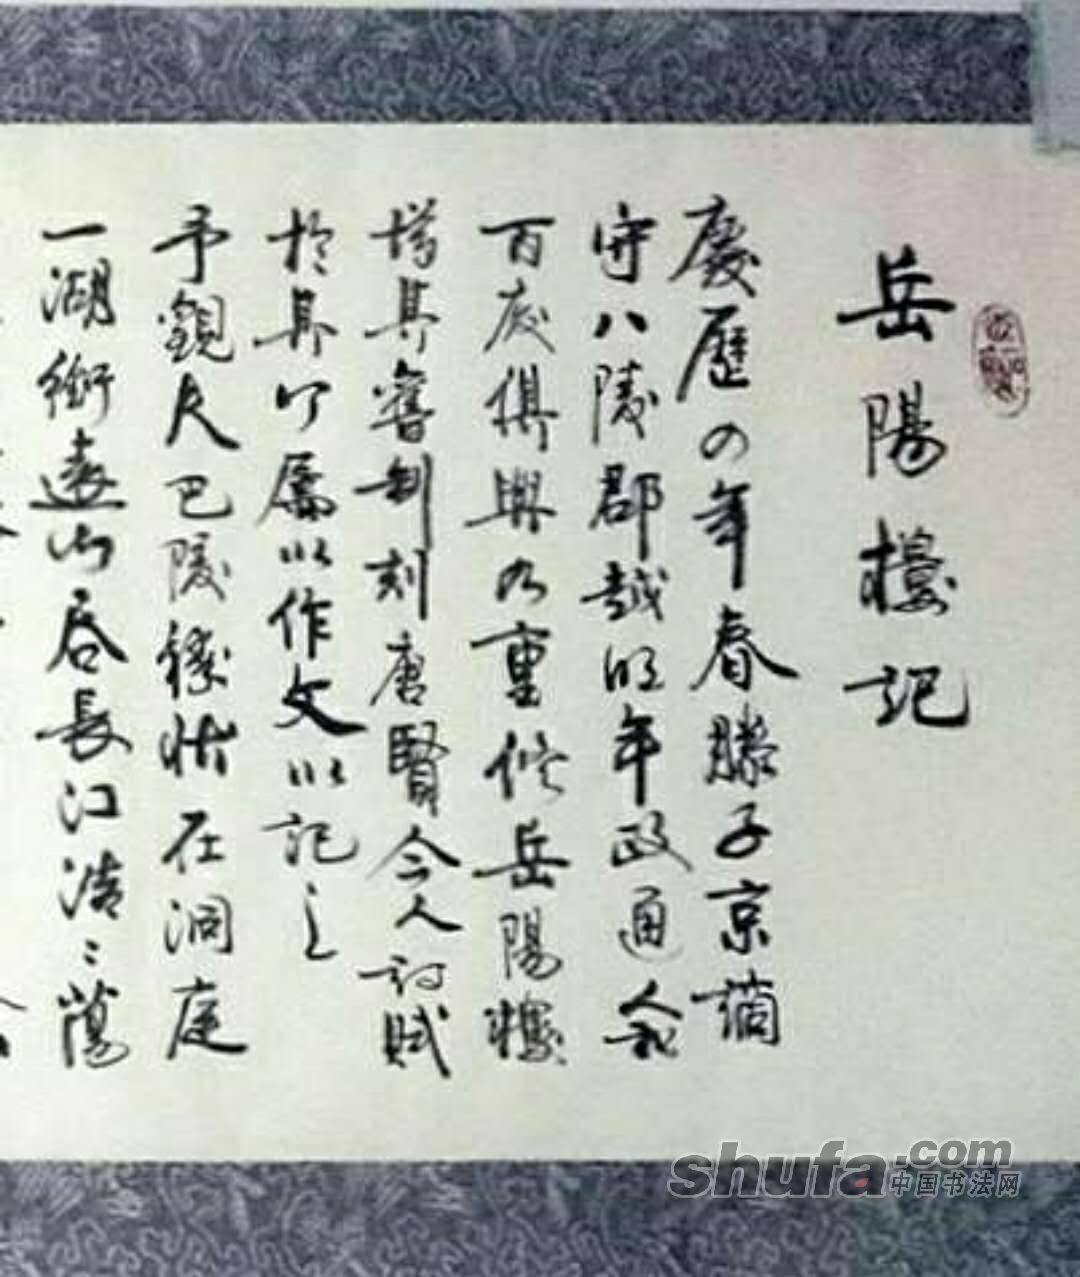 岳陽樓記
慶歷四年春滕子京謫
守八陵郡越明年政通人和
百废俱興乃重修岳陽樓
增其舊制刻唐賢今人詩賦
於其上屬以作文以記之
予觀夫巴陵勝狀在洞庭
一湖銜遠山吞長江浩〻蕩
shufa.com
中国书法网